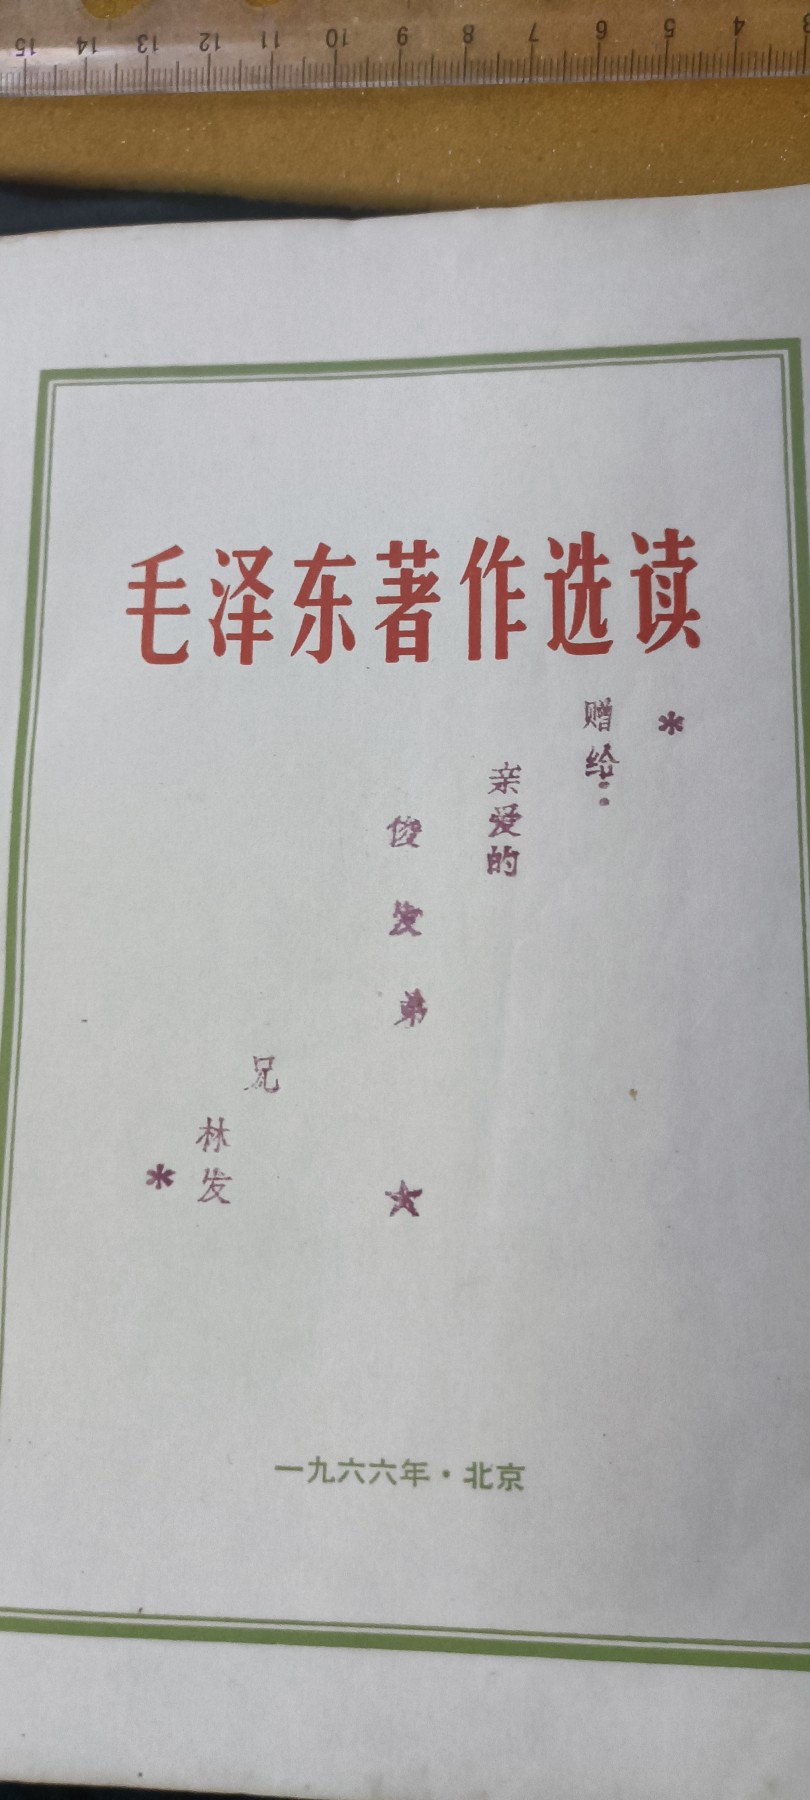 15 14 13 12 11 10 9 8 7 6 5 4 3
毛泽东著作选读
*
赠给:
亲爱的
俊发弟
★
兄
林发
*
一九六六年·北京